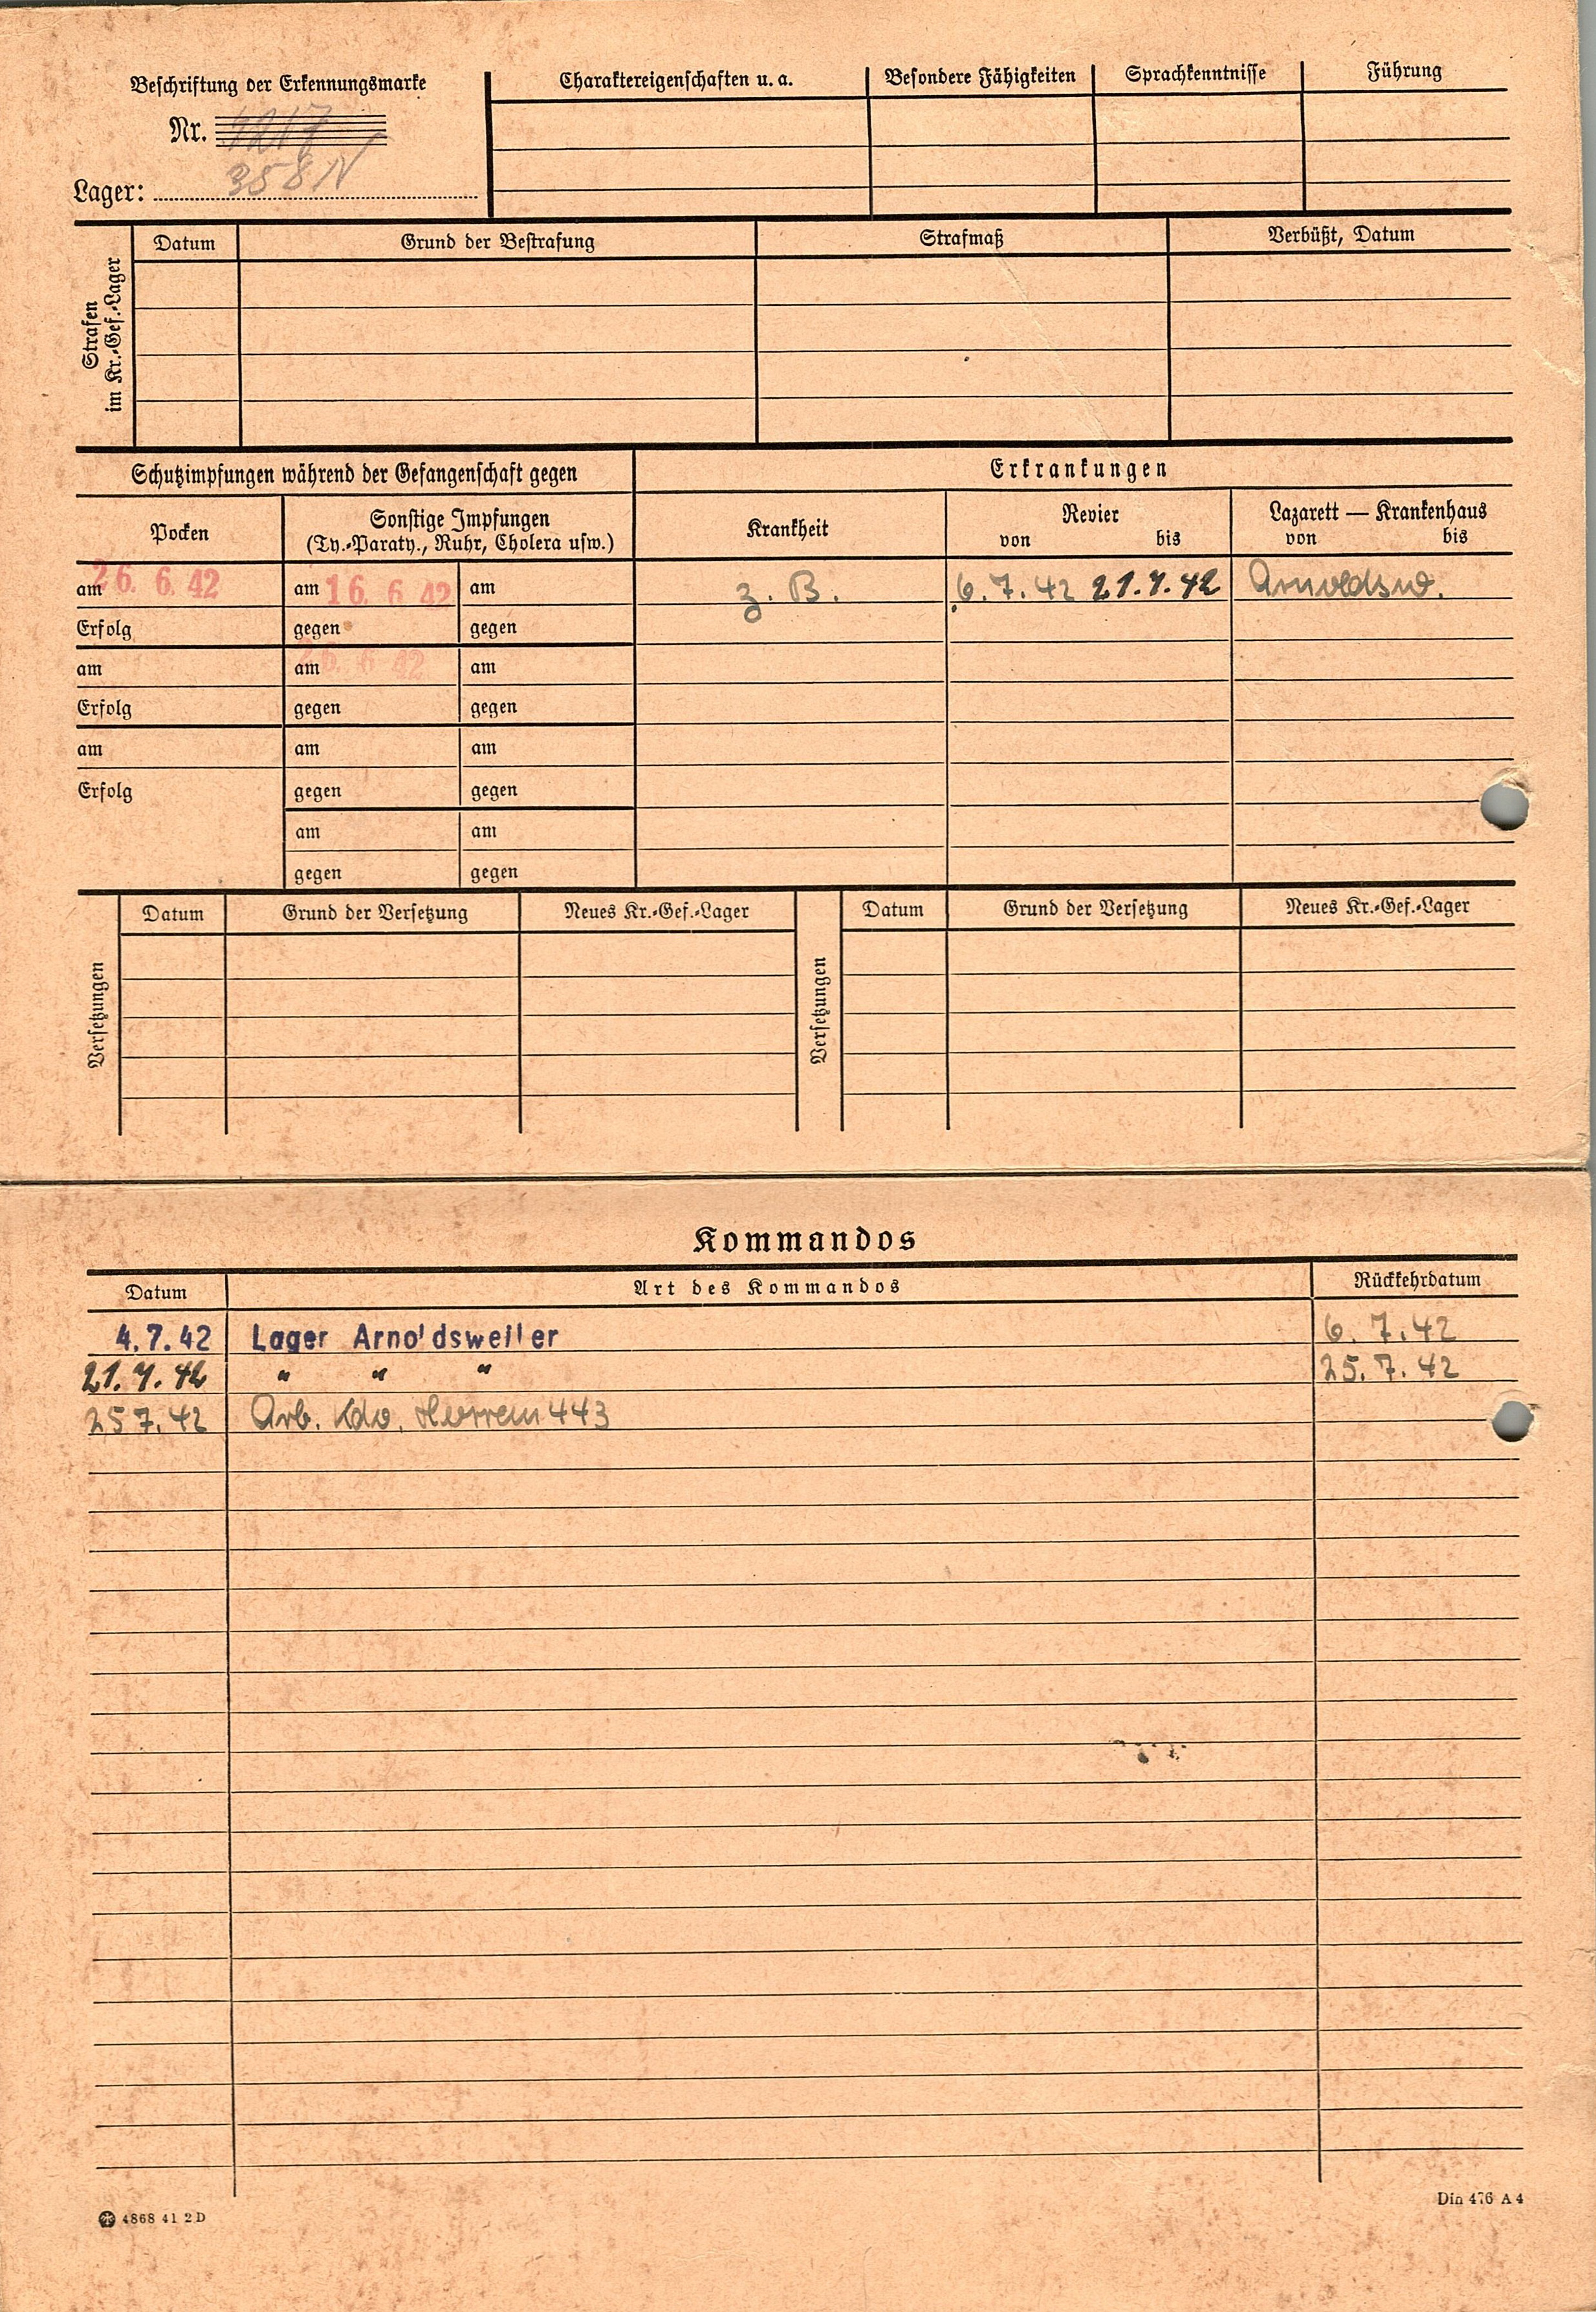 Beschriftung der Erkennungsmarke
Nr. 4217
Lager: 358 N
Charaktereigenschaften u. a. Besondere Fähigkeiten Sprachkenntnisse Führung
Strafen
im Kr.-Gef.-Lager
Datum Grund der Bestrafung Strafmaß Verbüßt, Datum
Schutzimpfungen während der Gefangenschaft gegen Erkrankungen
Pocken
Sonstige Impfungen
(Ty.-Paraty., Ruhr, Cholera usw.)
Krankheit
Revier
von bis
Lazarett — Krankenhaus
von bis
am 26. 6. 42 am 16. 6 42 am z. B. 6. 7. 42 21.7.42 Arnoldsw.
Erfolg gegen gegen
am am 26. 6 42 am
Erfolg gegen gegen
am am am
Erfolg gegen gegen
am am
gegen gegen
Versetzungen
Datum Grund der Versetzung Neues Kr.-Gef.-Lager
Versetzungen
Datum Grund der Versetzung Neues Kr.-Gef.-Lager
Kommandos
Datum Art des Kommandos Rückkehrdatum
4.7.42 Lager Arnoldsweiler 6. 7. 42
21.7.42 " " " 25. 7. 42
25 7. 42 Arb. Kdo. 443
4868 41 2 D
Din 476 A 4